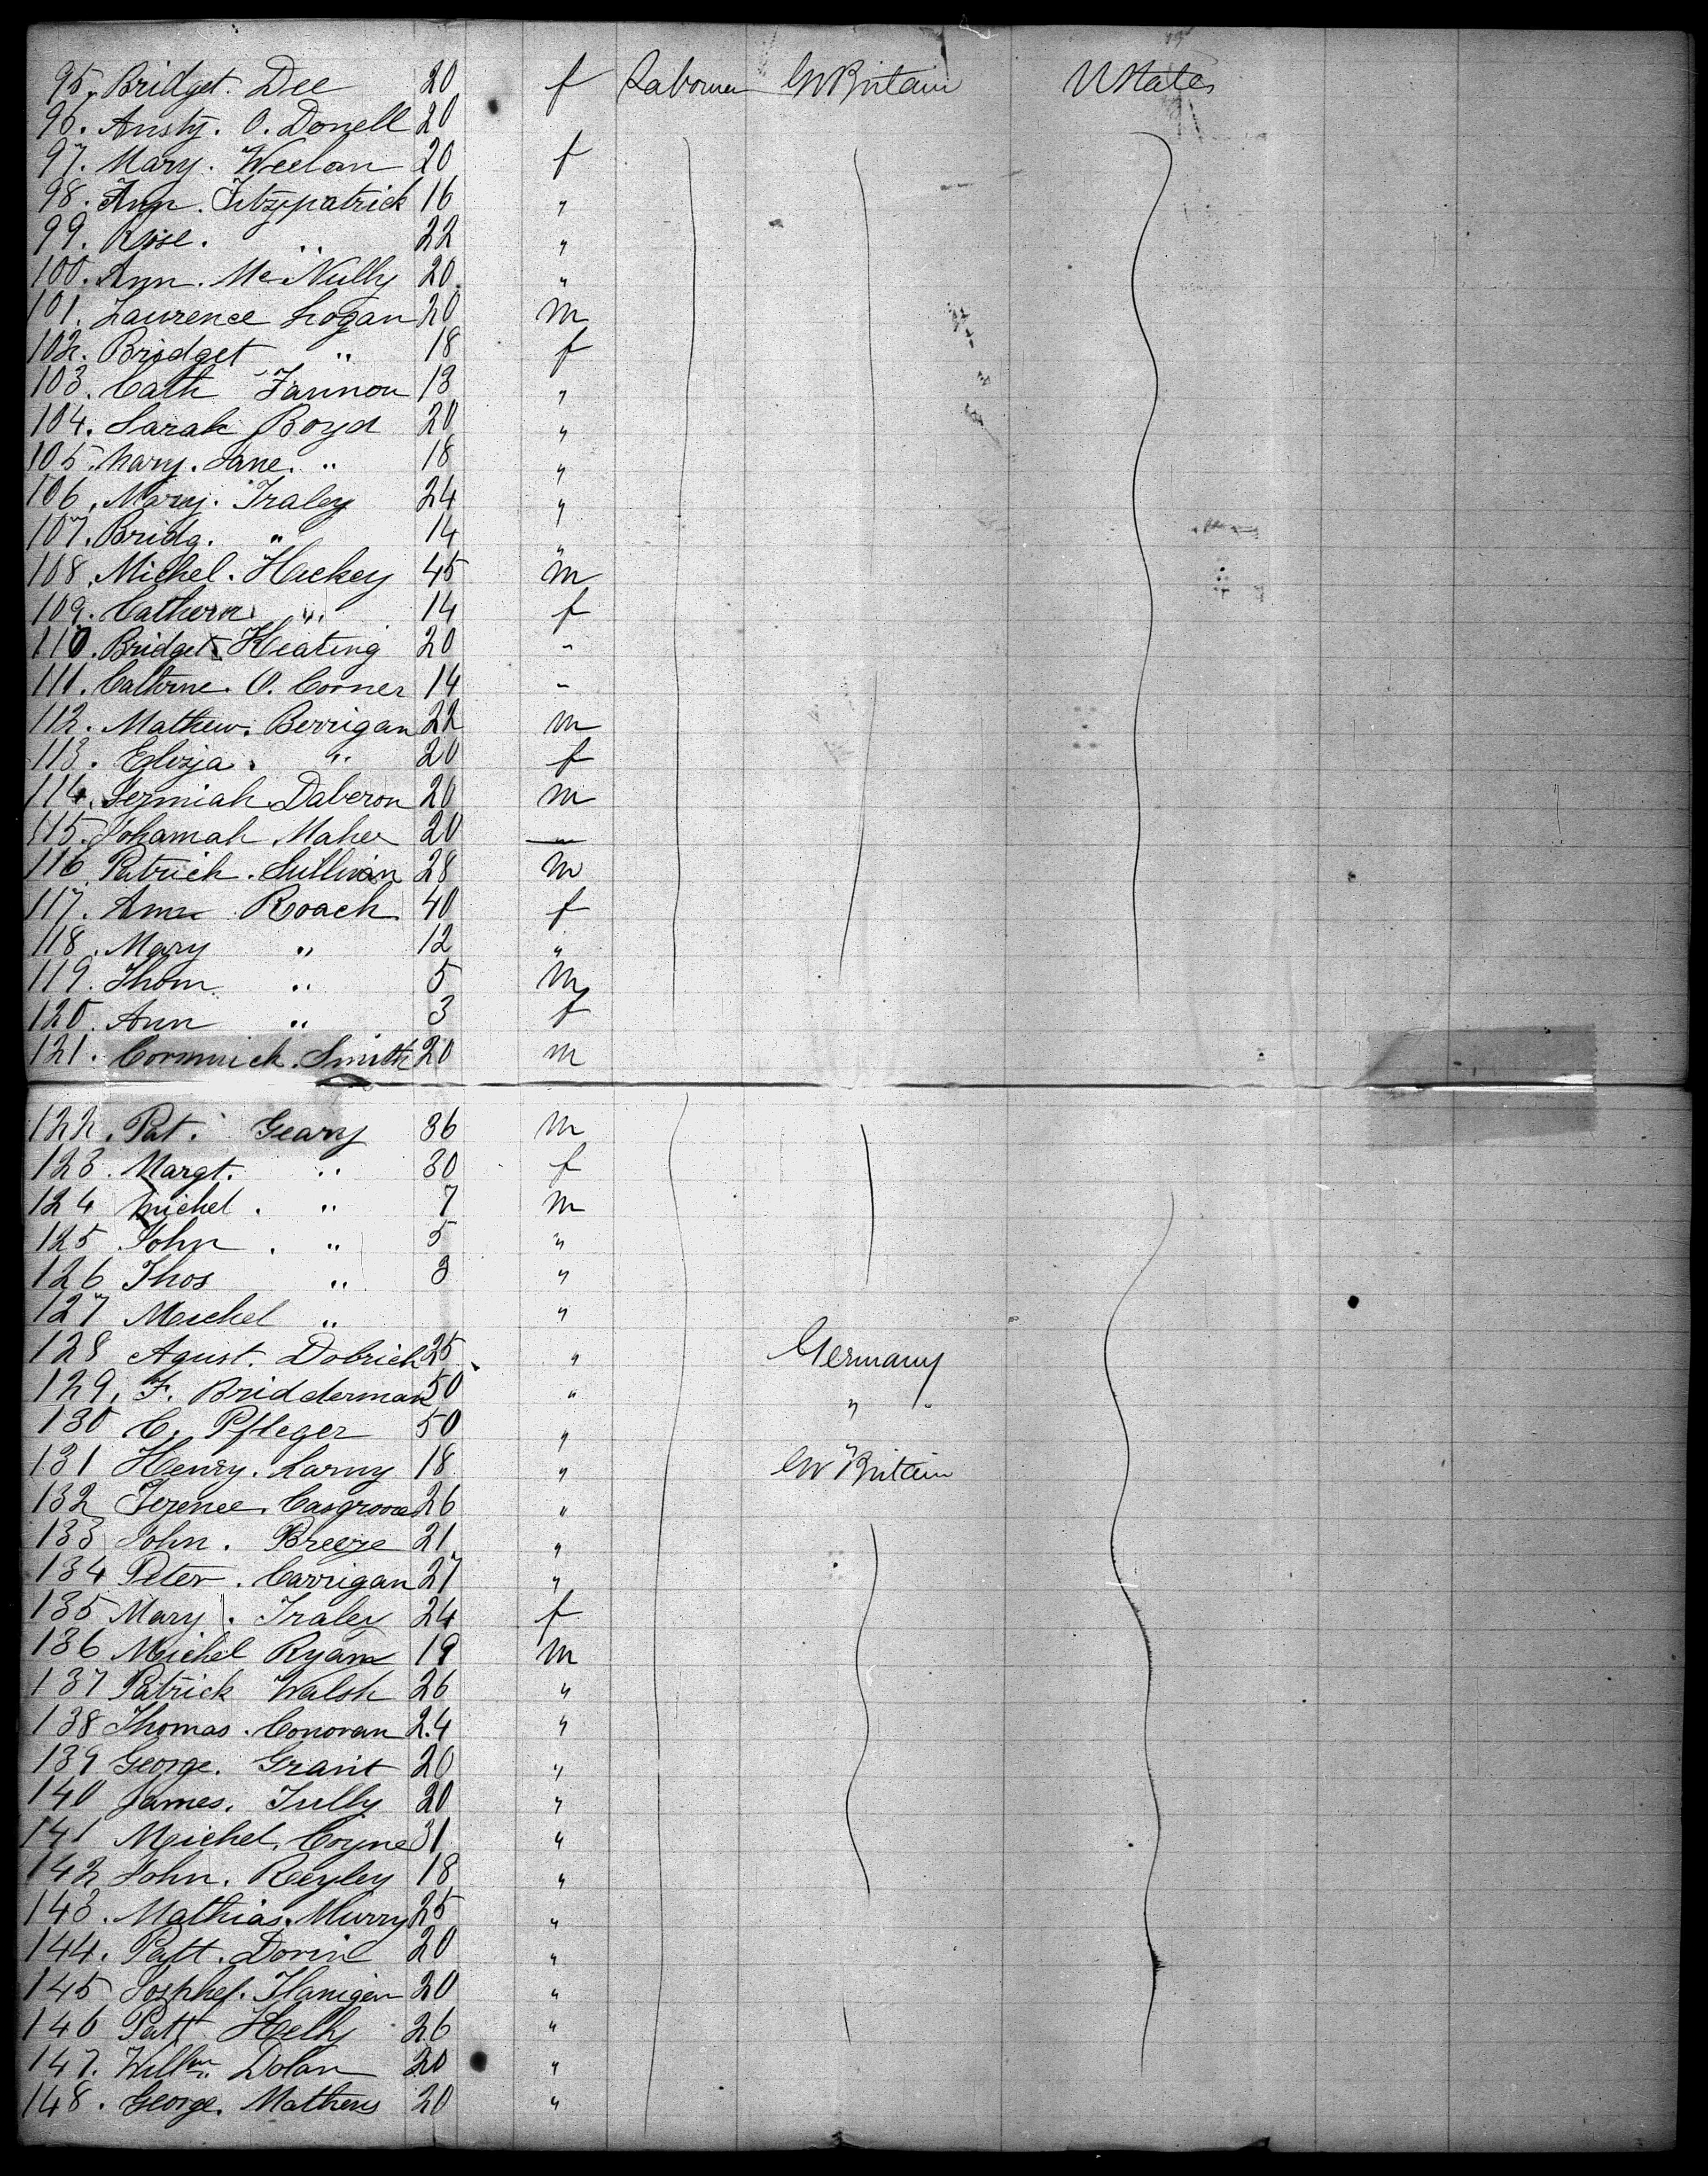 95. Bridget. Dee 20 f Labourer Gr Britain U States
96. Ansty. O. Donell 20
97. Mary. Weelan 20 f
98. Ann. Fitzpatrick 16 "
99. Rose. " 22 "
100. Ann. Mc Nully 20 "
101. Laurence Logan 20 m
102. Bridget " 18 f
103. Cath Fannon 18 "
104. Sarah Boyd 20 "
105. Mary. Jane. " 18 "
106. Mary. Fraley 24 "
107. Bridg. " 14 "
108. Michel. Hackey 45 m
109. Cathern " 14 f
110. Bridget Keating 20 "
111. Catherne. O. Corner 14 "
112. Mathew. Berrigan 22 m
113. Eliza. " 20 f
114. Jermiah Daberon 20 m
115. Johamah. Maher 20 —
116 Patrick. Sullivan 28 m
117. Ann Roach 40 f
118. Mary " 12 "
119. Thom " 5 m
120. Ann " 3 f
121. Cormick. Smith 20 m
122. Pat. Geary 36 m
123. Margt. " 30 f
124 Michel. " 7 m
125 John. " 5 "
126 Thos " 3 "
127 Meichel " "
128 Agust. Dobrich 25 " Germany
129. F. Bridderman 50 " "
130 C. Pfleger 50 " "
131 Henry. Larny 18 " Gr Britain
132 Terence. Casgrove 26 "
133 John. Breeze 21 "
134 Peter. Carrigan 27 "
135 Mary. Fraley 24 f
136 Meichel Ryan 19 m
137 Patrick Walsh 26 "
138 Thomas. Conovan 24 "
139 George. Grant 20 "
140 James. Tully 20 "
141 Meichel. Coyne 31 "
142 John. Reyley 18 "
143. Mathias. Murry 25 "
144. Patt. Dorin 20 "
145 Josphef. Flanigan 20 "
146 Patt Kelly 26 "
147. Willm Dolan 20 "
148. George. Mathews 20 "